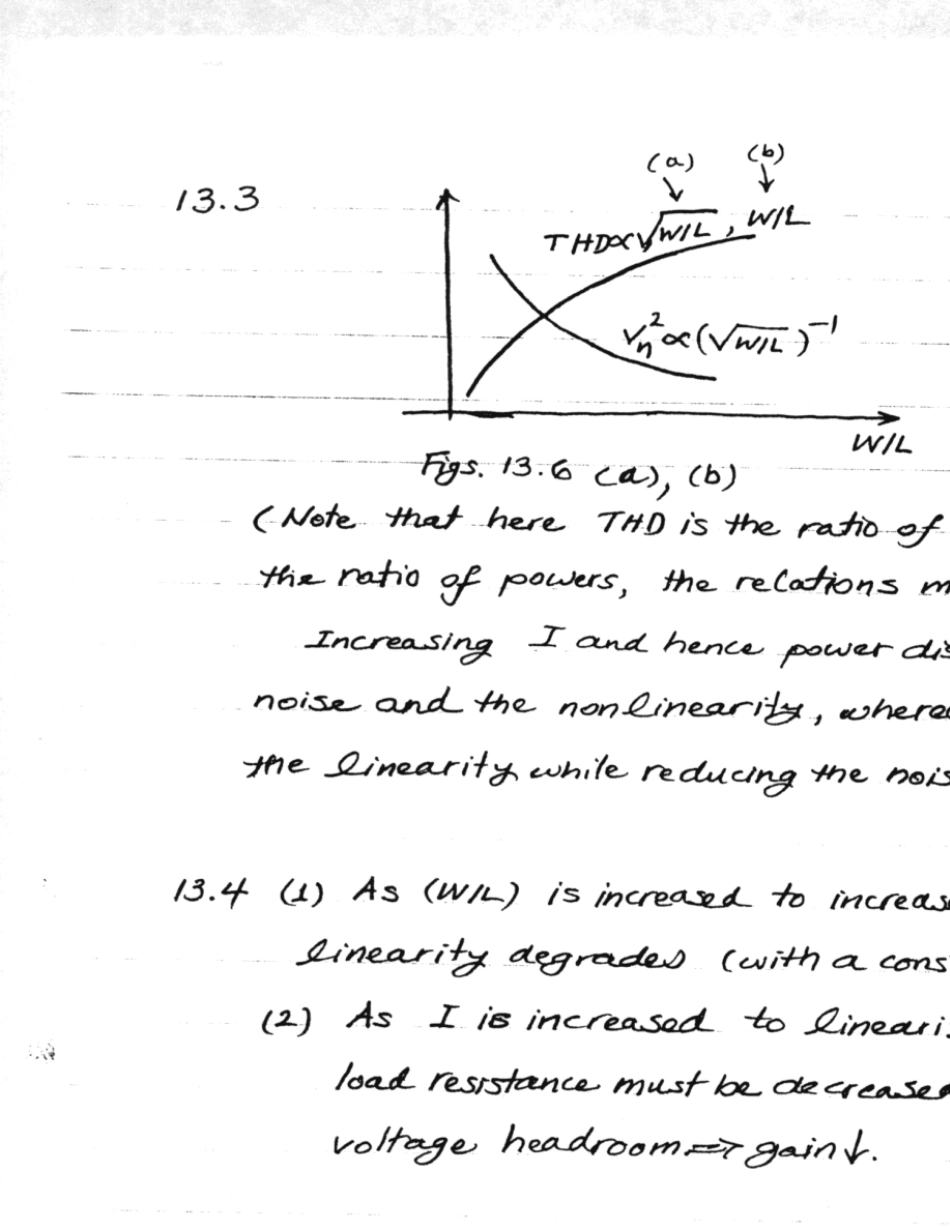 (a) (b)
13.3
THD∝√W/L , W/L
Vn²∝(√W/L)⁻¹
W/L
Figs. 13.6 (a), (b)
(Note that here THD is the ratio of
the ratio of powers, the relations m
Increasing I and hence power dis
noise and the nonlinearity, wherea
the linearity while reducing the nois
13.4 (1) As (W/L) is increased to increase
linearity degrades (with a cons
(2) As I is increased to lineari
load resistance must be decreased
voltage headroom ⇒ gain↓.